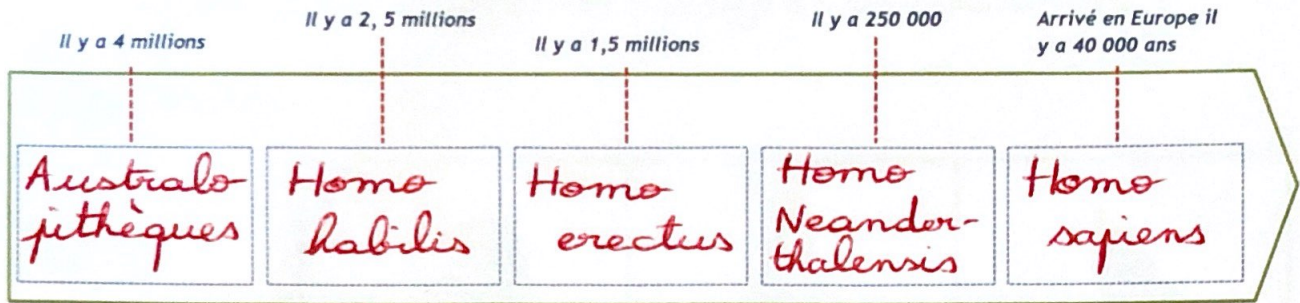 Il y a 4 millions
Il y a 2, 5 millions
Il y a 1,5 millions
Il y a 250 000
Arrivé en Europe il
y a 40 000 ans
Australo-
pithèques
Homo
habilis
Homo
erectus
Homo
Neander-
thalensis
Homo
sapiens